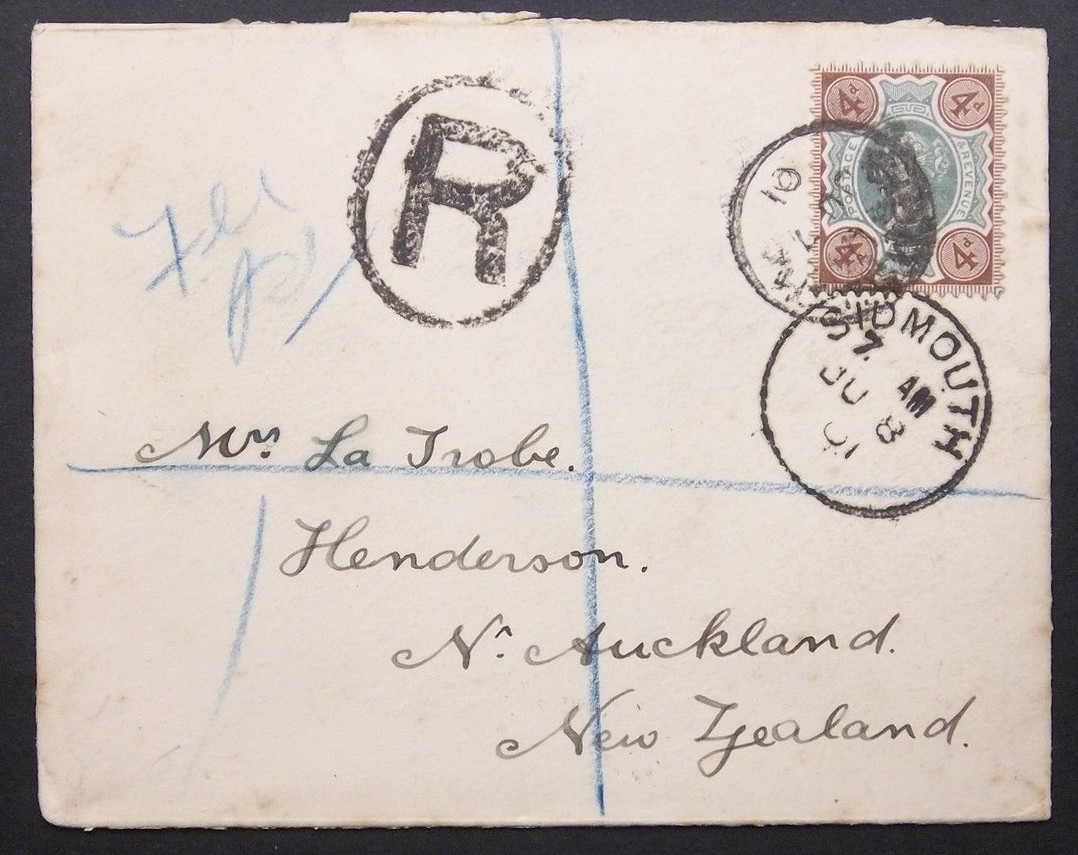 R
4d 4d
POSTAGE & REVENUE
4d 4d
01
SIDMOUTH
7. AM
JU 8
01
Mrs. La Trobe.
Henderson.
Nr. Auckland.
New Zealand.